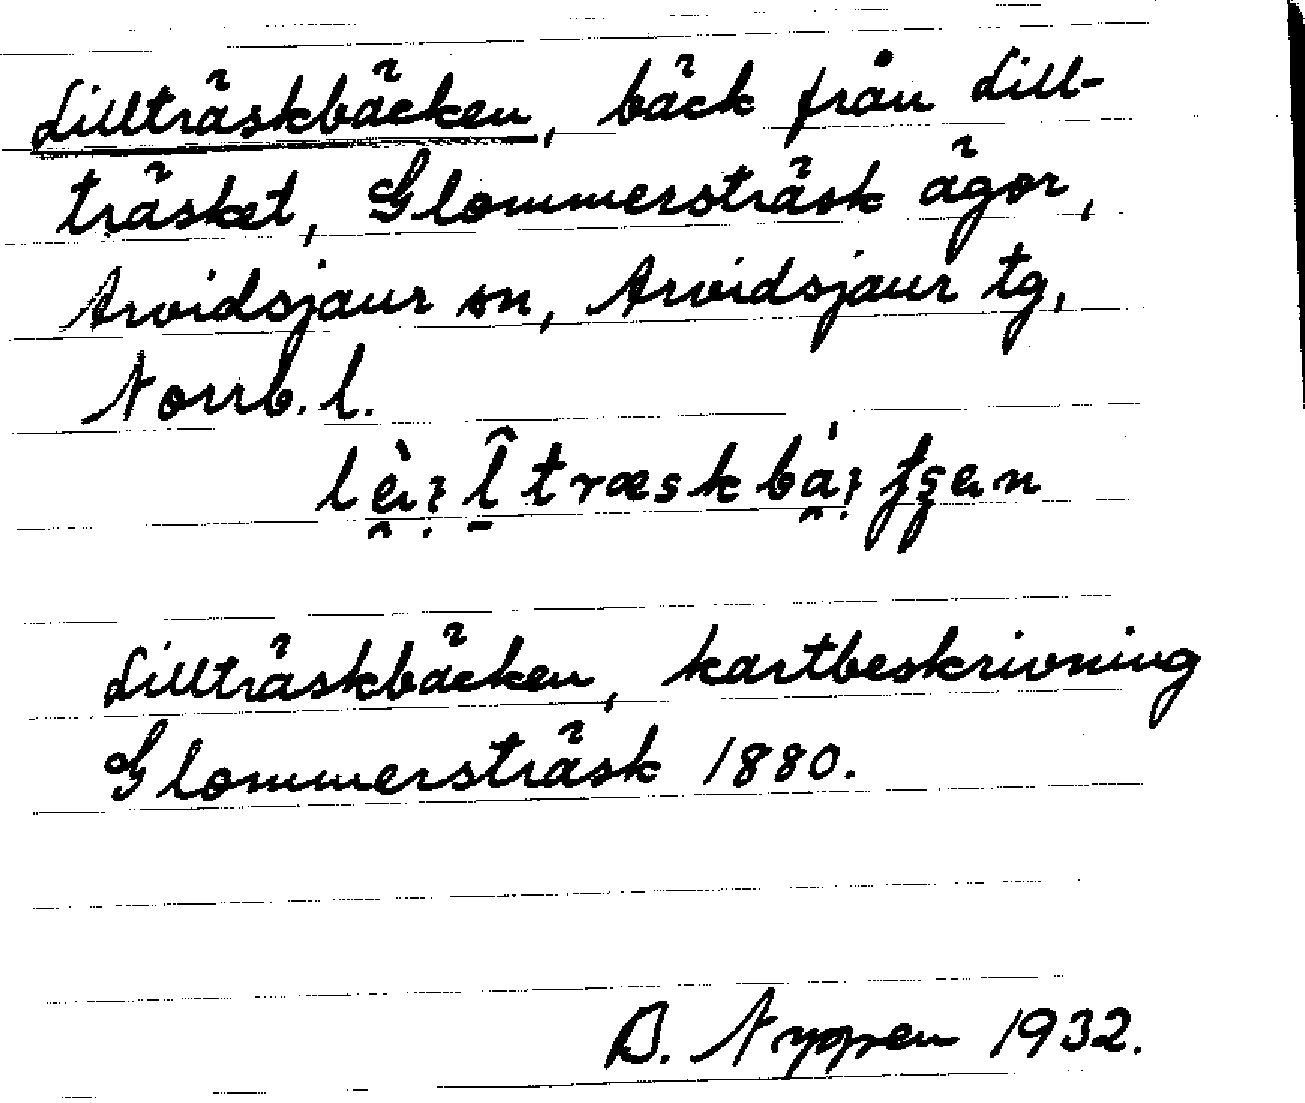 Lillträskbäcken, bäck från Lill-
träsket, Glommersträsk ägor,
Arvidsjaur sn, Arvidsjaur tg,
Norrb. l.
Lillträskbäcken, kartbeskrivning
Glommersträsk 1880.
B. 1932.